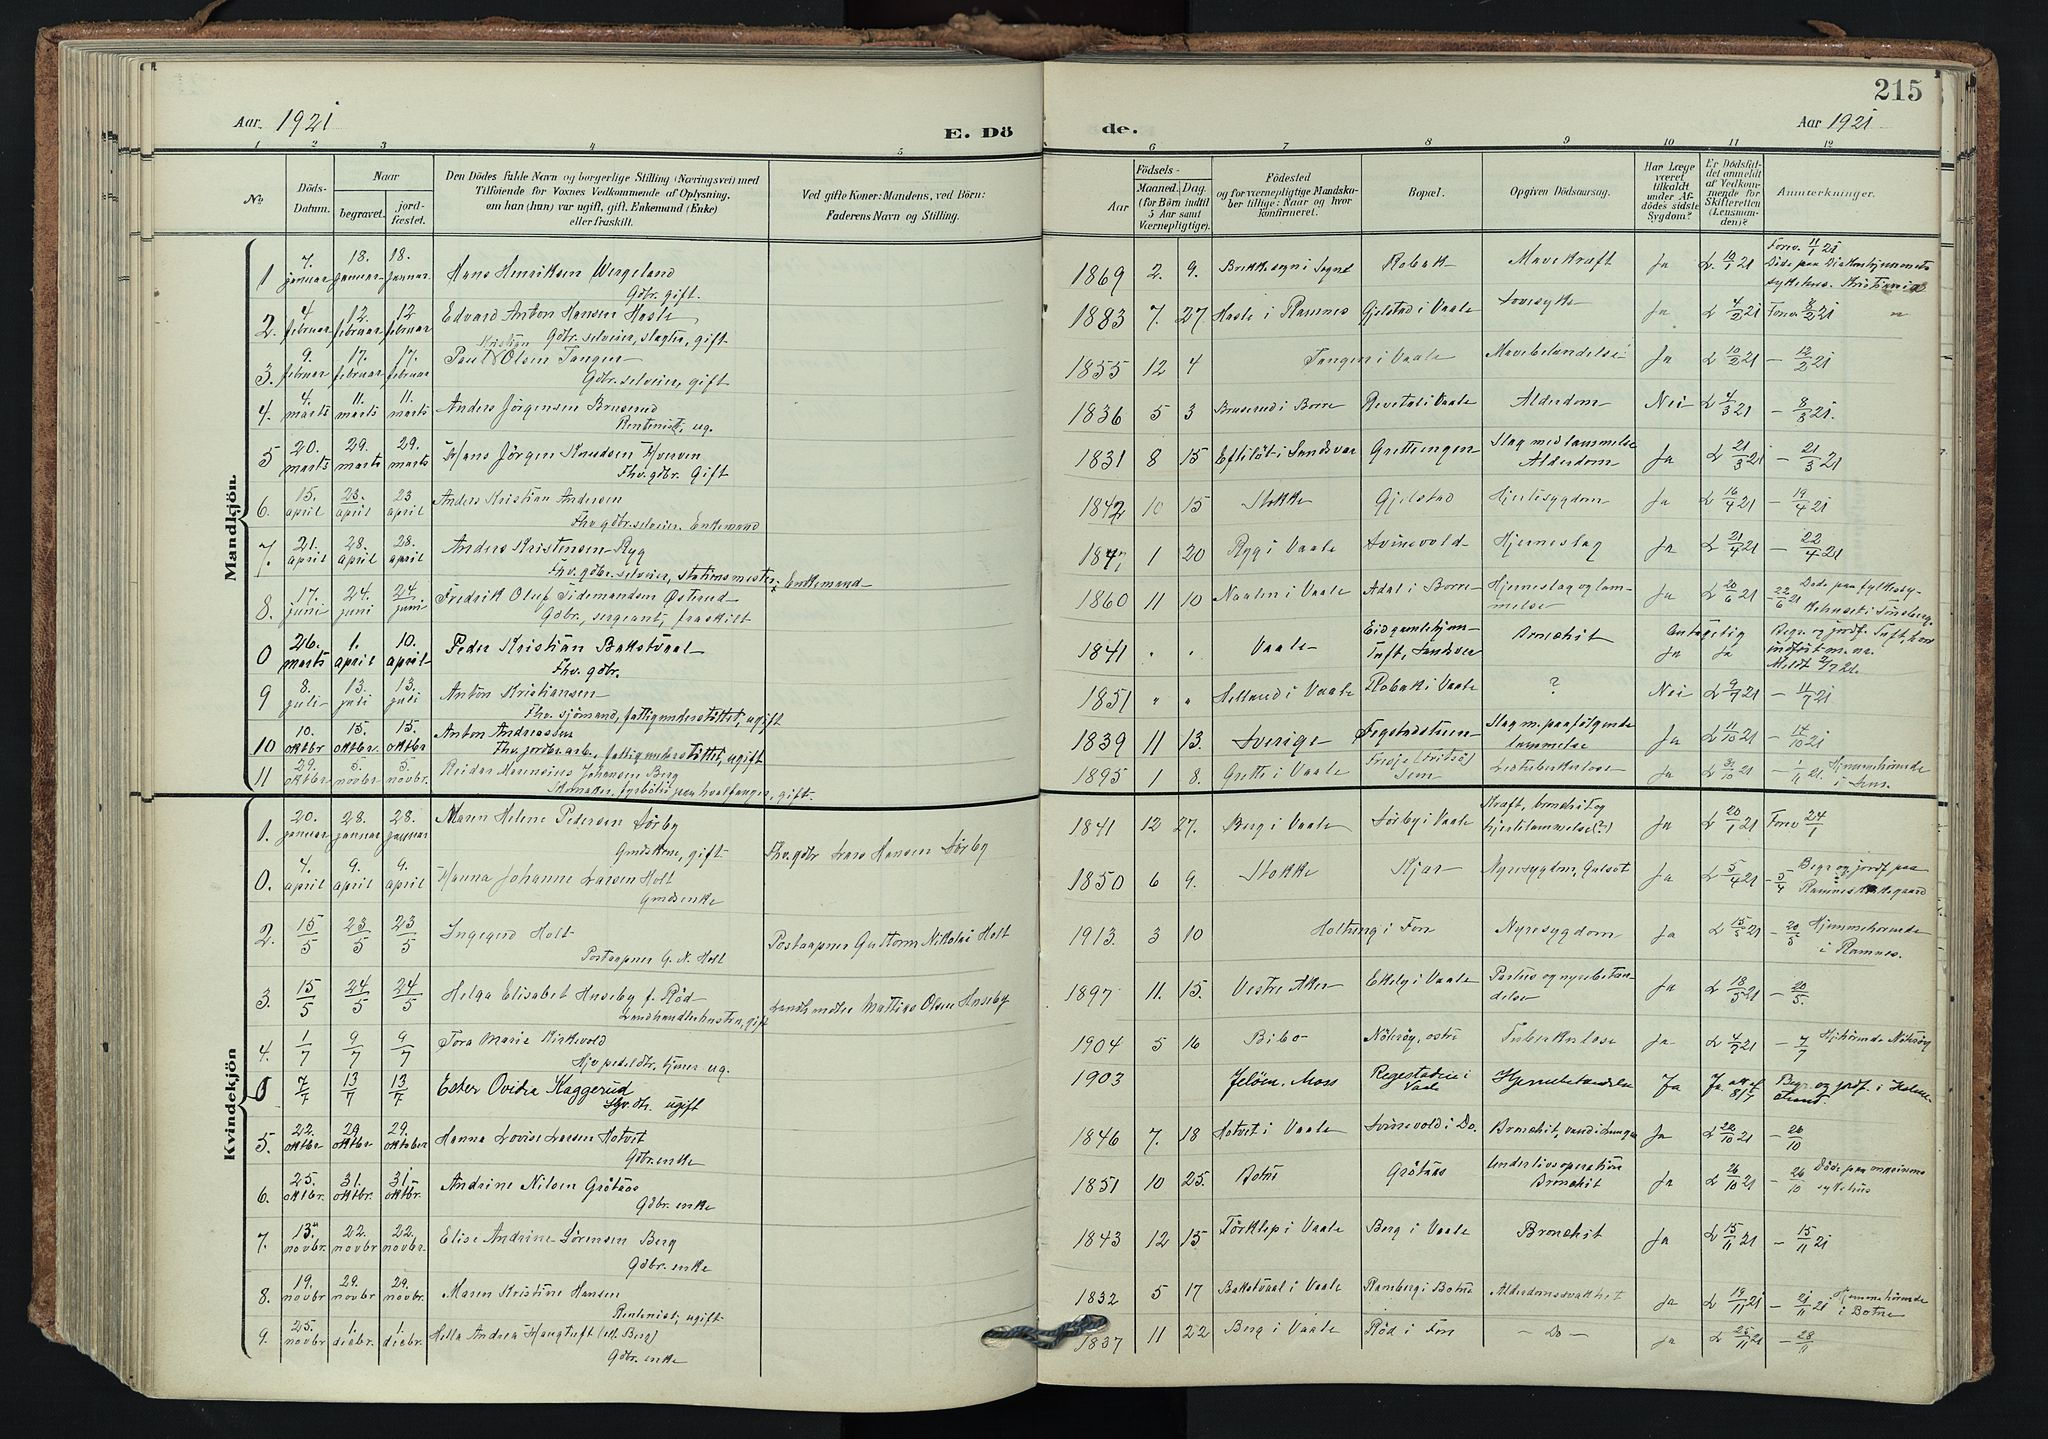 215
Aar. 1921
E. Döde.
Aar 1921
1 2 3 4 5 6 7 8 9 10 11 12
No.
Döds-Datum.
Naar
begravet.
jord-fæstet.
Den Dödes fulde Navn og borgerlige Stilling (Næringsvei) med
Tilföiende for Voxnes Vedkommende af Oplysning,
om han (hun) var ugift, gift, Enkemand (Enke)
eller fraskilt.
Ved gifte Koner: Mandens, ved Börn:
Faderens Navn og Stilling.
Födsels-
Aar
Maaned. Dag.
(for Börn indtil
5 Aar samt
Værnepligtige).
Födested
og for værnepligtige Mandska-
ber tillige: Naar og hvor
konfirmeret.
Bopæl.
Opgiven Dödsaarsag.
Har Læge
været
tilkaldt
under Af-
dödes sidste
Sygdom?
Er Dödsfal-
det anmeldt
af Vedkom-
mende for
Skifteretten
(Lensman-
den)?
Anmærkninger.
Mandkjön.
1 7. januar 18. januar 18. januar Hans Henriksen Wergeland 1869 2. 9. Robak Mavekræft Ja L. 10/1 21 Forev. 11/1 21
Gdbr. gift. Döde paa Diakonhjemmets
sykehus. Kristiania
2. 4 februar 12. februar 12 februar Edvard Anton Hansen Hasle 1883 7. 27 Hasle i Ramnes Gjelstad i Vaale Sovesyke Ja L 4/2 21 Forev 8/2 21
Gdbr. selveier, slagter, gift.
3. 9. februar 17. februar 17. februar Paul Kristian Olsen Tangen 1855 12 4 Tangen i Vaale Mavebetændelse Ja L 10/2 21 – 12/2 21
Gdbr. selveier, gift
4. 4. marts 11. marts 11. marts Anders Jörgensen Bruserud 1836 5 3 Bruserud i Borre Revetal i Vaale Alderdom Nei L 4/3 21 – 8/3 21.
Rentenist, ug.
5 20. marts 29. marts 29. marts Hans Jörgen Knudsen 1831 8 15 Efteløt i Sandsvær Slag med lammelse Alderdom Ja L 21/3 21 – 21/3 21
Fhv. gdbr. Gift
6. 15. april 23. april 23 april Anders Kristian Andersen 1842 10 15 Stokke Gjelstad Hjertesygdom Ja L 16/4 21 – 19/4 21
Fhv. gdbr. selveier. Enkemand
7. 21. april 28. april 28. april Anders Kristensen Ryg 1847 1 20 Ryg i Vaale Svinevold Hjerneslag Ja L 21/4 21 – 22/4 21
Fhv. gdbr. selveier, stationsmester; Enkemand
8. 17. juni 24. juni 24 juni Fredrik Oluf Sidemandsen Østrud 1860 11 10 Adal i Borre Hjerneslag og lam-melse Ja L 20/6 21 22/6 21 Döde paa fylkessy-kehuset i Tönsberg.
Gdbr., sergeant, fraskilt
0 26. marts 1. april 10. april Peder Kristian Bakstvaal 1841 " " Vaale Eidsgamlehjem Tuft, Sandsvær Bronchit Antagelig Ja Ja Begr. og jordf. Tuft,
Fhv. gdbr. indfört m. nr.
9 8. juli 13. juli 13. juli Anton Kristiansen 1851 " " Helland i Vaale Robak i Vaale ? Nei L 9/7 21 – 11/7 21
Fhv. sjömand, fattigunderstöttet, ugift
10 10. oktbr 15. oktbr. 15. oktbr Anton Andreassen 1839 11 13. Sverige Slag m. paafölgende lammelse Ja L 11/10 21 – 14/10 21
Fhv. jordbr. arb., fattigunderstöttet, ugift
11 29. oktbr 5. novbr 5. novbr. Reidar Marensius Johansen Berg 1895 1 8. Grette i Vaale Sem Ja L 31/10 21 – 1/11 21. Hjemmehörende i Sem.
Skomaker, fyrböter paa hvalfanger, gift.
Kvindekjön
1. 20. januar 28. januar 28. januar Maren Helene Pedersen Sörby Fhv. gdbr Lars Hansen Sörby 1841 12 27. Berg i Vaale Sörby i Vaale Kræft, bronchit og hjertelammelse (?) Ja L 20/1 21 Forev 24/1
Gmdskone, gift
0. 4. april 9. april 9. april Hanna Johanne Larsen Holt 1850 6 9. Stokke Kjær Nyresygdom, Gulsot Ja L 5/4 21 – 5/4 Begr. og jordf. paa
Gmdsenke Ramnes kirkegaard
2. 15/5 23/5 23/5 Ingegerd Holt Postaapner Guttorm Nikolai Holt 1913. 3 10 Holtung i Fon Nyresygdom Ja L 15/5 21 – 20/5 Hjemmehörende i Ramnes.
Postaapner G. N. Holt
3. 15/5 24/5 24/5 Helga Elisabet Huseby f. Röd Landhandler Mathias Olsen Huseby 1897 11. 15. Vestre Aker Ekely i Vaale Partus og nyrebetæn-delse Ja L 18/5 21 – 20/5.
Landhandlerhustru, gift
4. 1/7 9/7 9/7 Tora Marie Kirkevold 1904 5 16 Bibo Nökröy, östre Tuberkulose Ja L 4/7 21 – 7/7
ug.
0 7/7 13/7 13/7 Ester Ovidia Kaggerud 1903 Jelöen, Moss Hjernebetændelse Ja Ja 8/7 Begr. og jordf. i
ugift
5. 22. oktbr 29 oktbr. 29. oktober Hanna Lovise Larsen Hotvet 1846 7. 18 Hotvet i Vaale Svinevold i Do. Bronchit, vand i lunger Ja L 22/10 21 – 26/10
Gdbr. enke
6. 25. oktbr. 31. oktbr. 31. oktbr. Andrine Nilsen Grötaas 1851 10 25. Botne Grötaas Underlivsoperation Bronchit Ja L 26/10 21 – 26/10 Döde paa
Gdbr. enke sykehus
7. 13. novbr. 22. novbr 22. novbr. Elise Andrine Sörensen Berg 1843 12 15 Törklep i Vaale Berg i Vaale Bronchit Ja L 15/11 21 – 15/11 21
Gdbr. enke
8. 19. novbr 29. novbr 29. novbr. Maren Kristine Hansen 1832 5 17 Bakstvaal i Vaale Ramberg i Botne Alderdomssvakhet Ja L 19/11 21 – 21/11 21 Hjemmehörende i Botne
Rentenist, ugift
9. 25. novbr 1. decbr. 1. decbr. Hella Andrea Haugtuft (ell. Berg) 1837 11 22 Berg i Vaale Röd i Fon – Do – Ja L 25/11 21 – 28/11
Gdbr. enke